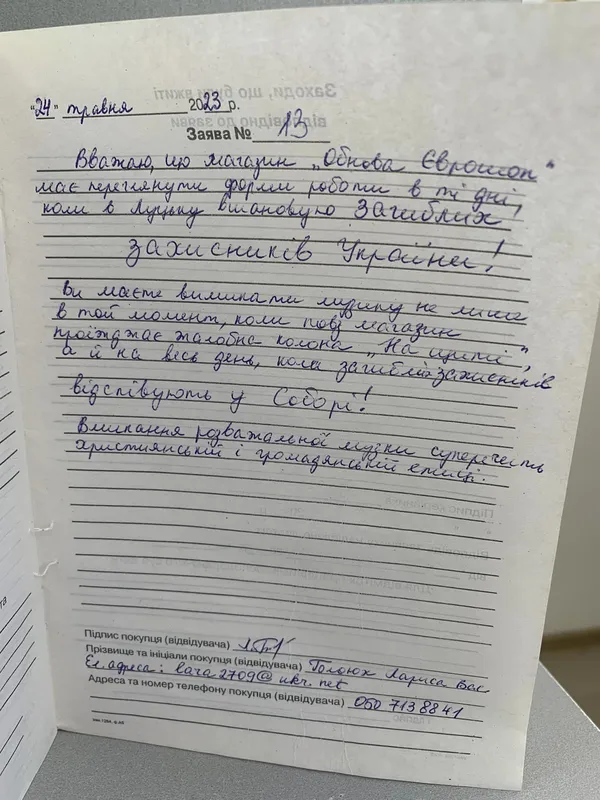 "24" травня 2023 р.
Заява № 13
Вважаю, що магазин „Обнова Єврошоп"
має переглянути форми роботи в ті дні,
коли в Луцьку вшановують Загиблих
Захисників України!
Ви маєте вимикати музику не лише
в той момент, коли повз магазин
проїжджає жалобна колона „На щиті",
а й на весь день, коли загиблих захисників
відспівують у Соборі!
Вмикання розважальної музики суперечить
християнській і громадянській етиці.
Підпис покупця (відвідувача)
Прізвище та ініціали покупця (відвідувача) Лариса Вас
Ел. адреса: lara2709@ukr.net
Адреса та номер телефону покупця (відвідувача) 050 713 88 41